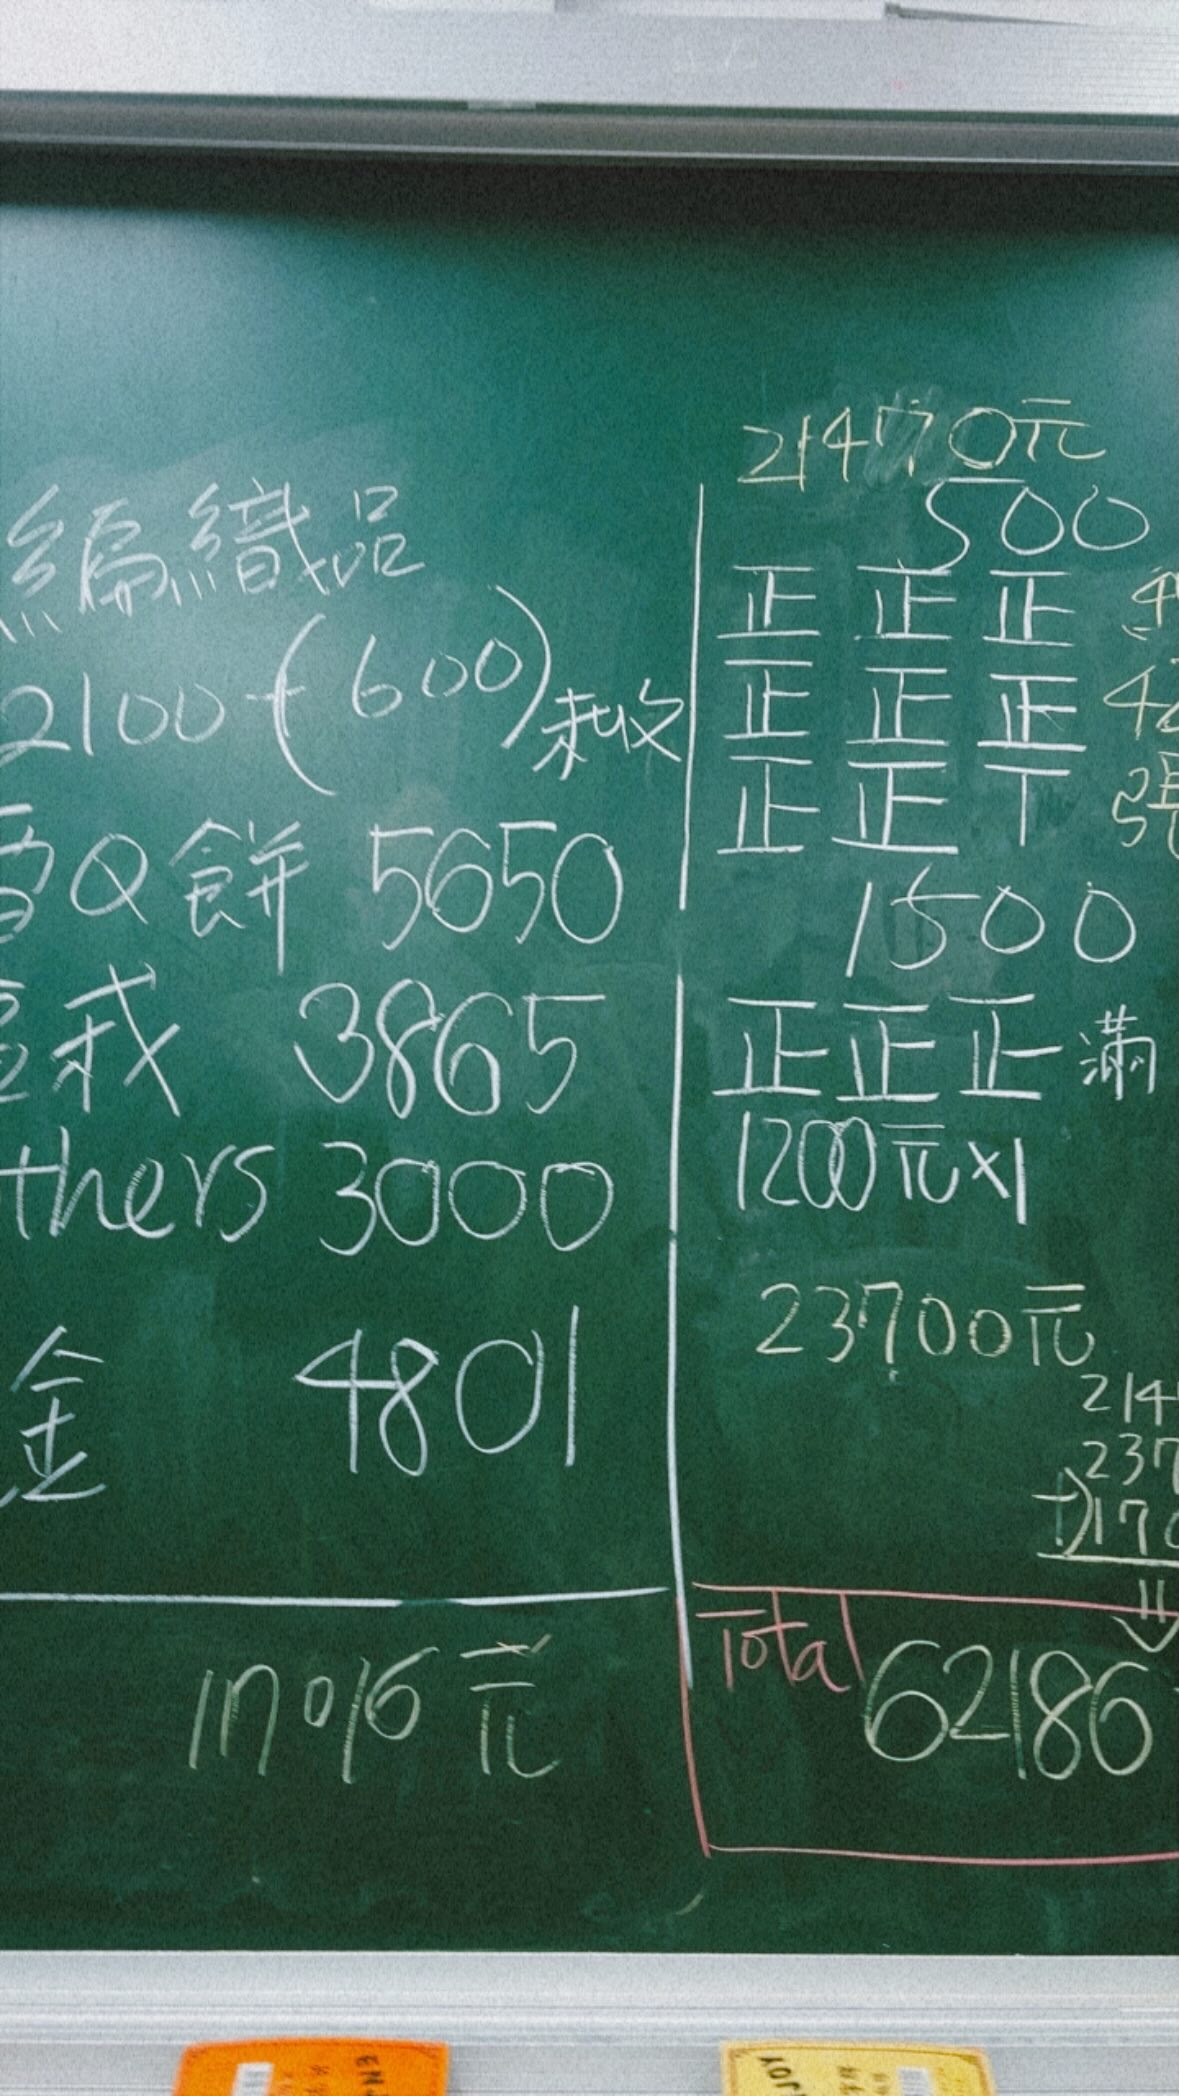 編織品
2100+(600)未收
雪Q餅 5650
我 3865
thers 3000
金 4801
17016元
21470元
500
正正正
正正正 42
正正丅 張
1500
正正正 滿
1200元x1
23700元
214
237
+)170
Total 62186